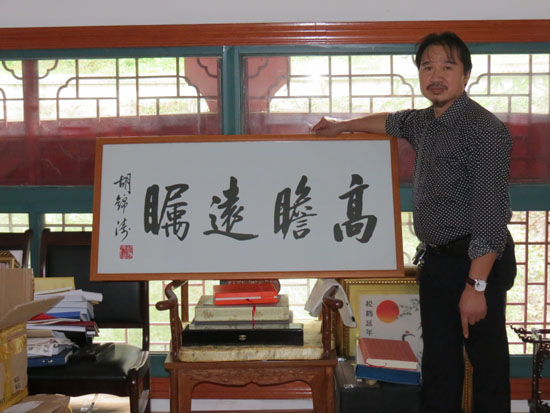 高瞻遠矚
胡錦濤
松鶴延年